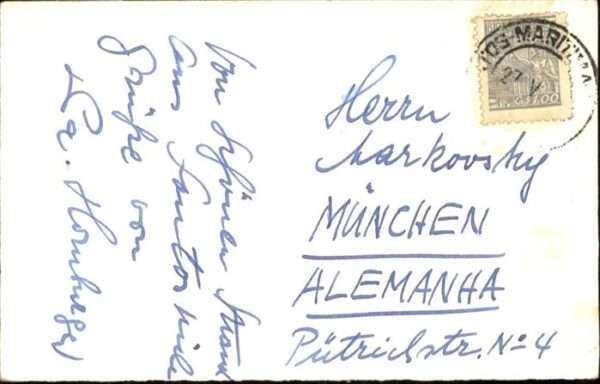 Vom schönen Strand
aus Santos viele
Grüße von
Hornberger
TOS-MARITIMA
27 V
CR$1,00
Herrn
Markovsky
MÜNCHEN
ALEMANHA
Pütrichstr. No 4